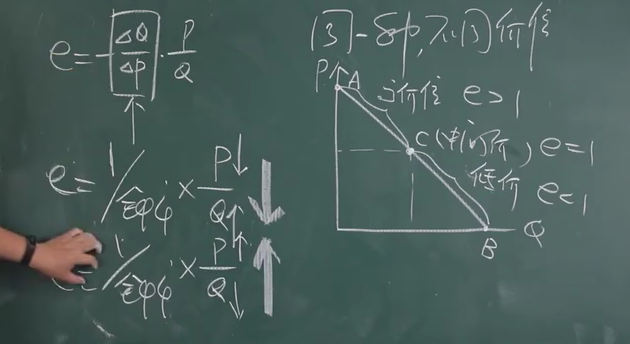 e = -ΔQ/ΔP · P/Q
e = 1/斜率 × P↓/Q↑ ↓
= 1/斜率 × P↑/Q↓ ↑
同一 , 不同价位
P
A
高价位 e>1
C(中间价) e=1
低价 e<1
B
Q